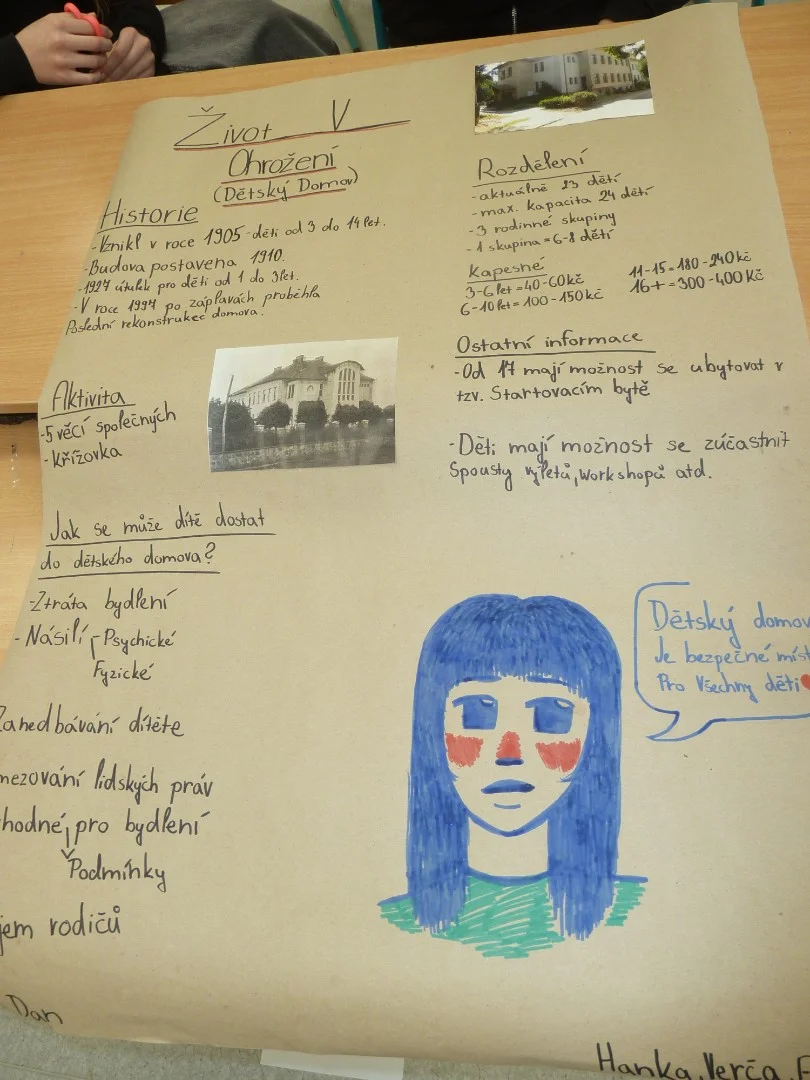 Život V
Ohrožení
(Dětský Domov)
Historie
-Vznikl v roce 1905-děti od 3 do 14 let.
-Budova postavena 1910.
-1927 útulek pro děti od 1 do 3let.
-V roce 1997 po záplavách proběhla
Poslední rekonstrukce domova.
Aktivita
-5 věcí společných
-křížovka
Jak se může dítě dostat
do dětského domova?
-Ztráta bydlení
-Násilí Psychické
Fyzické
Zanedbávání dítěte
mezování lidských práv
hodné pro bydlení
Podmínky
jem rodičů
Dan
Rozdělení
-aktuálně 23 dětí
-max. kapacita 24 dětí
-3 rodinné skupiny
-1 skupina = 6-8 dětí
Kapesné
3-6 let = 40-60kč
6-10let = 100-150kč
11-15=180-240kč
16+ = 300-400Kč
Ostatní informace
-Od 17 mají možnost se ubytovat v
tzv. Startovacím bytě
-Děti mají možnost se zúčastnit
Spousty výletů, workshopů atd.
Dětský domov
Je bezpečné míst
Pro Všechny děti
Hanka, Verča,